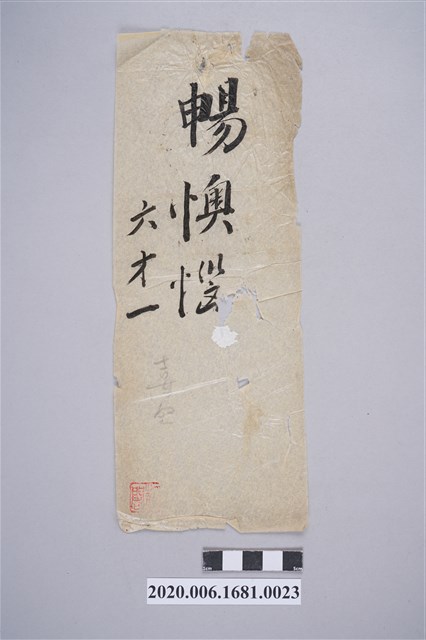 暢懊惱
六才一
喜
2020.006.1681.0023